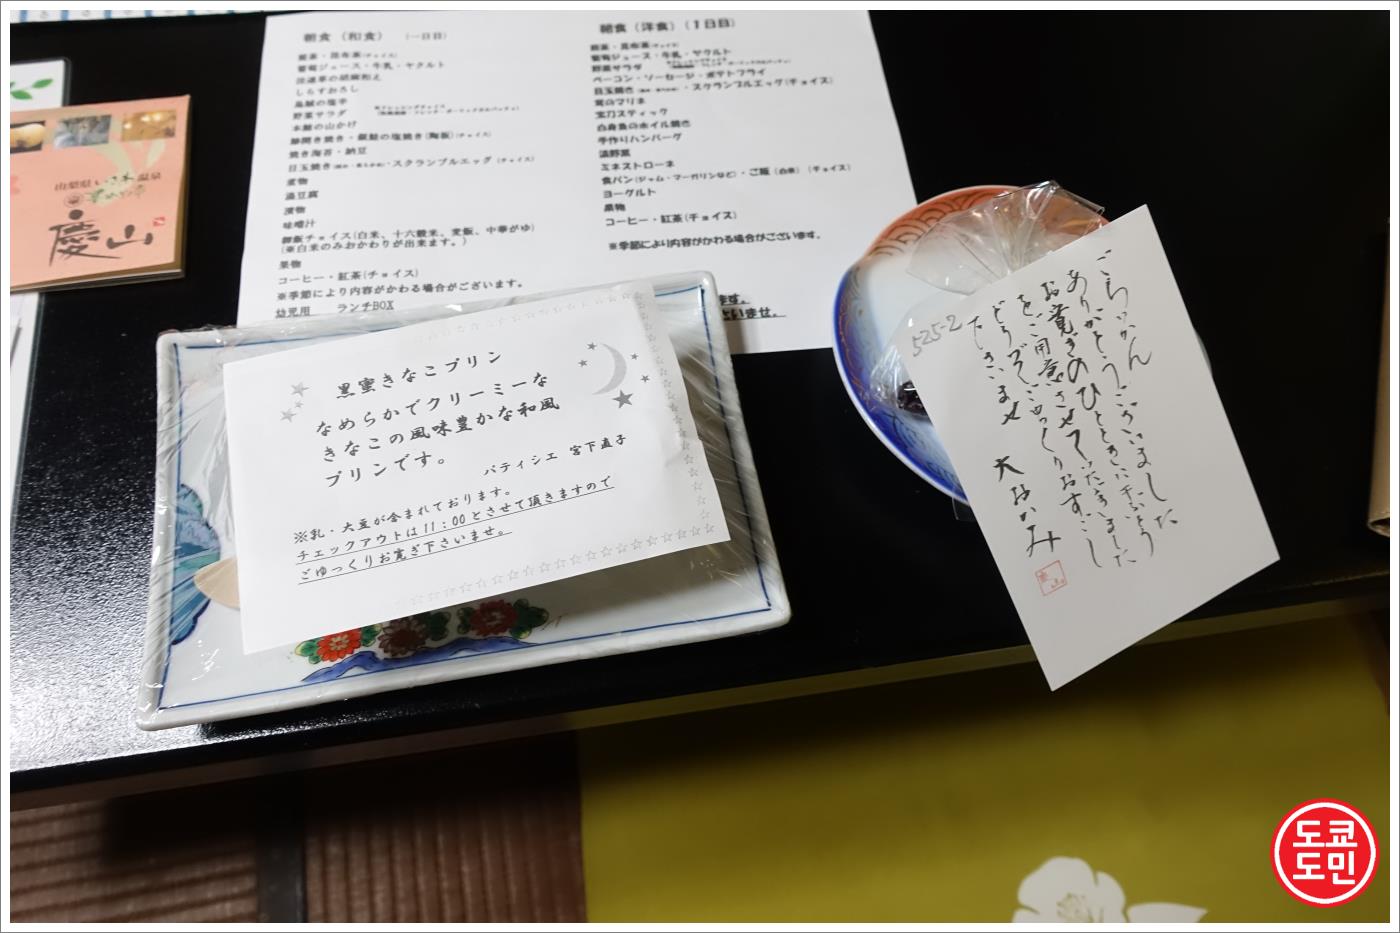 朝食（和食）　（一日目）
煎茶・昆布茶(チョイス)
葡萄ジュース・牛乳・ヤクルト
法蓮草の胡麻和え
しらすおろし
烏賊の塩辛
野菜サラダ
本鮪の山かけ
鯵開き焼き・銀鮭の塩焼き(陶板)(チョイス)
焼き海苔・納豆
・スクランブルエッグ (チョイス)
煮物
温豆腐
漬物
味噌汁
御飯チョイス(白米、十六穀米、麦飯、中華がゆ)
(※白米のみおかわりが出来ます。)
果物
コーヒー・紅茶(チョイス)
※季節により内容がかわる場合がございます。
幼児用　ランチBOX
朝食（洋食）（１日目）
煎茶・昆布茶(チョイス)
葡萄ジュース・牛乳・ヤクルト
野菜サラダ
ベーコン・ソーセージ・ポテトフライ
・スクランブルエッグ(チョイス)
のマリネ
宝刀スティック
白身魚のホイル焼き
手作りハンバーグ
温野菜
ミネストローネ
食パン(ジャム・マーガリンなど)・ご飯（白米）（チョイス）
ヨーグルト
果物
コーヒー・紅茶(チョイス)
※季節により内容がかわる場合がございます。
ます。
さいませ。
山梨県いさわ温泉
慶山
黒蜜きなこプリン
なめらかでクリーミーな
きなこの風味豊かな和風
プリンです。
パティシエ 宮下直子
※乳・大豆が含まれております。
チェックアウトは11：00とさせて頂きますので
ごゆっくりお寛ぎ下さいませ。
525-2
ごらいかん
ありがとうございました
お寛ぎのひとときに
をご用意させていただきました
どうぞごゆっくりおすごし
下さいませ
大おかみ
도쿄
도민